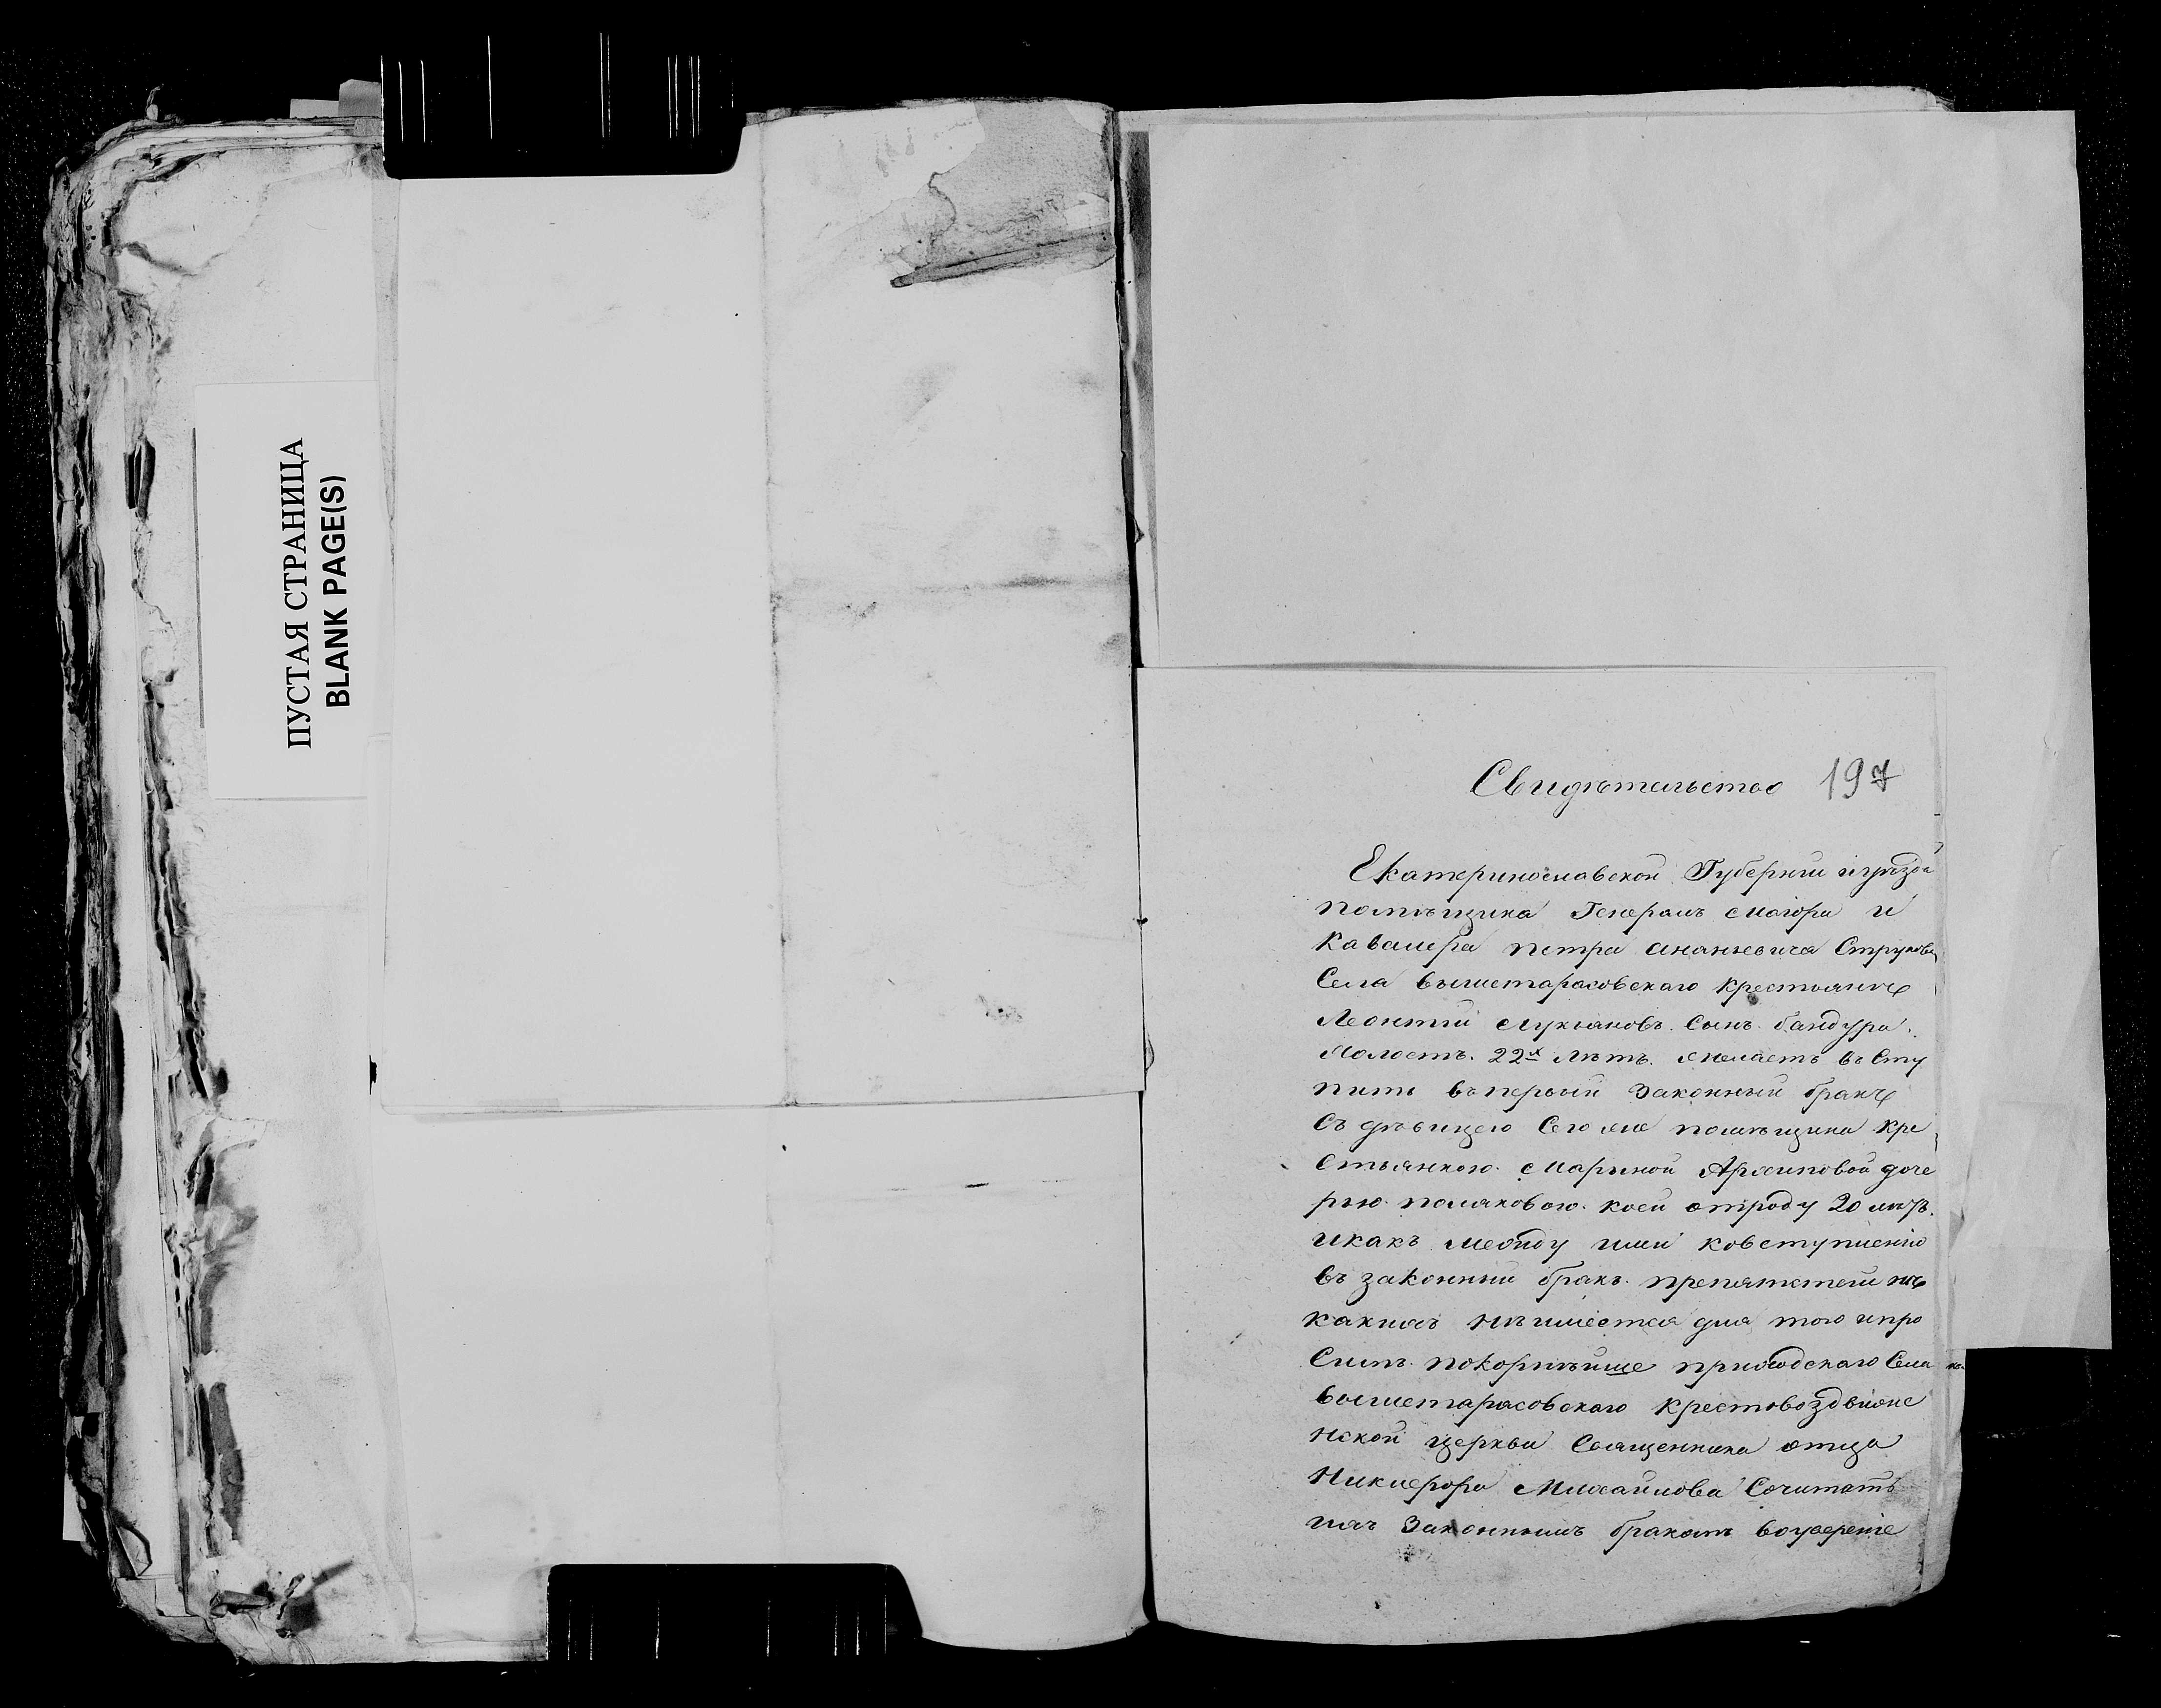 ПУСТАЯ СТРАНИЦА
BLANK PAGE(S)
Свидѣтельство 197
Екатеринославской Губернии иуѣзда
помѣщика Генералъ Маіора и
Кавалера петра Ананьевича Струкова
Села вышетарасовскаго крестьянинъ
Леонтий Лукьяновъ Сынъ бандура.
Холостъ. 22х лѣтъ. желаетъ въ Сту
пить въпервый Законный бракъ
Съ дѣвицею Сего же помѣщика кре
Стьянкою. Мариной Архиповой доче
рью. поляковою. коей отроду 20 лѣтъ.
икакъ между ими ковступленію
въ законный бракъ. препятстей ни
какихъ неимеется для того ипро
Ситъ покорнѣйше приходскаго Села
вышетарасовскаго крестовоздвиже
нской церкви Священника отца
Никиѳора Михайлова Сочитать
ихъ Законнымъ бракомъ воувереніе